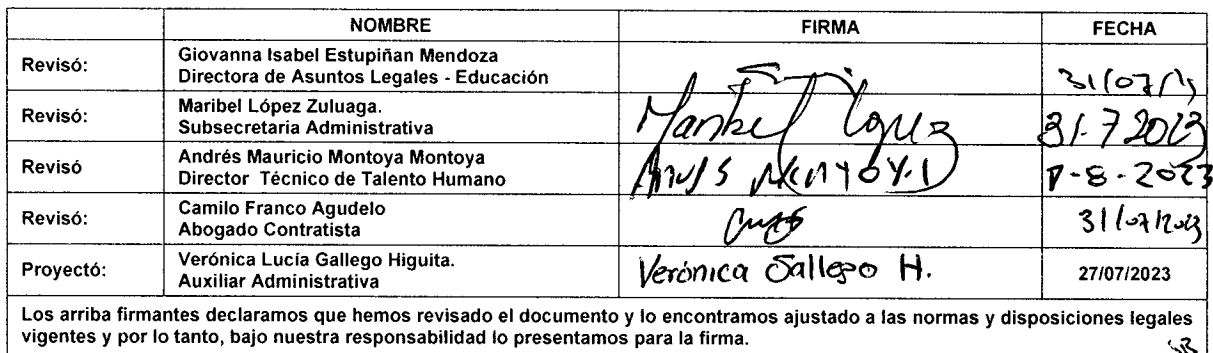 NOMBRE FIRMA FECHA
Revisó: Giovanna Isabel Estupiñan Mendoza
Directora de Asuntos Legales - Educación 31/07/
Revisó: Maribel López Zuluaga.
Subsecretaria Administrativa Maribel López 31.7 2023
Revisó Andrés Mauricio Montoya Montoya
Director Técnico de Talento Humano 8-2023
Revisó: Camilo Franco Agudelo
Abogado Contratista 31/07/2023
Proyectó: Verónica Lucía Gallego Higuita.
Auxiliar Administrativa Verónica Gallego H. 27/07/2023
Los arriba firmantes declaramos que hemos revisado el documento y lo encontramos ajustado a las normas y disposiciones legales
vigentes y por lo tanto, bajo nuestra responsabilidad lo presentamos para la firma.